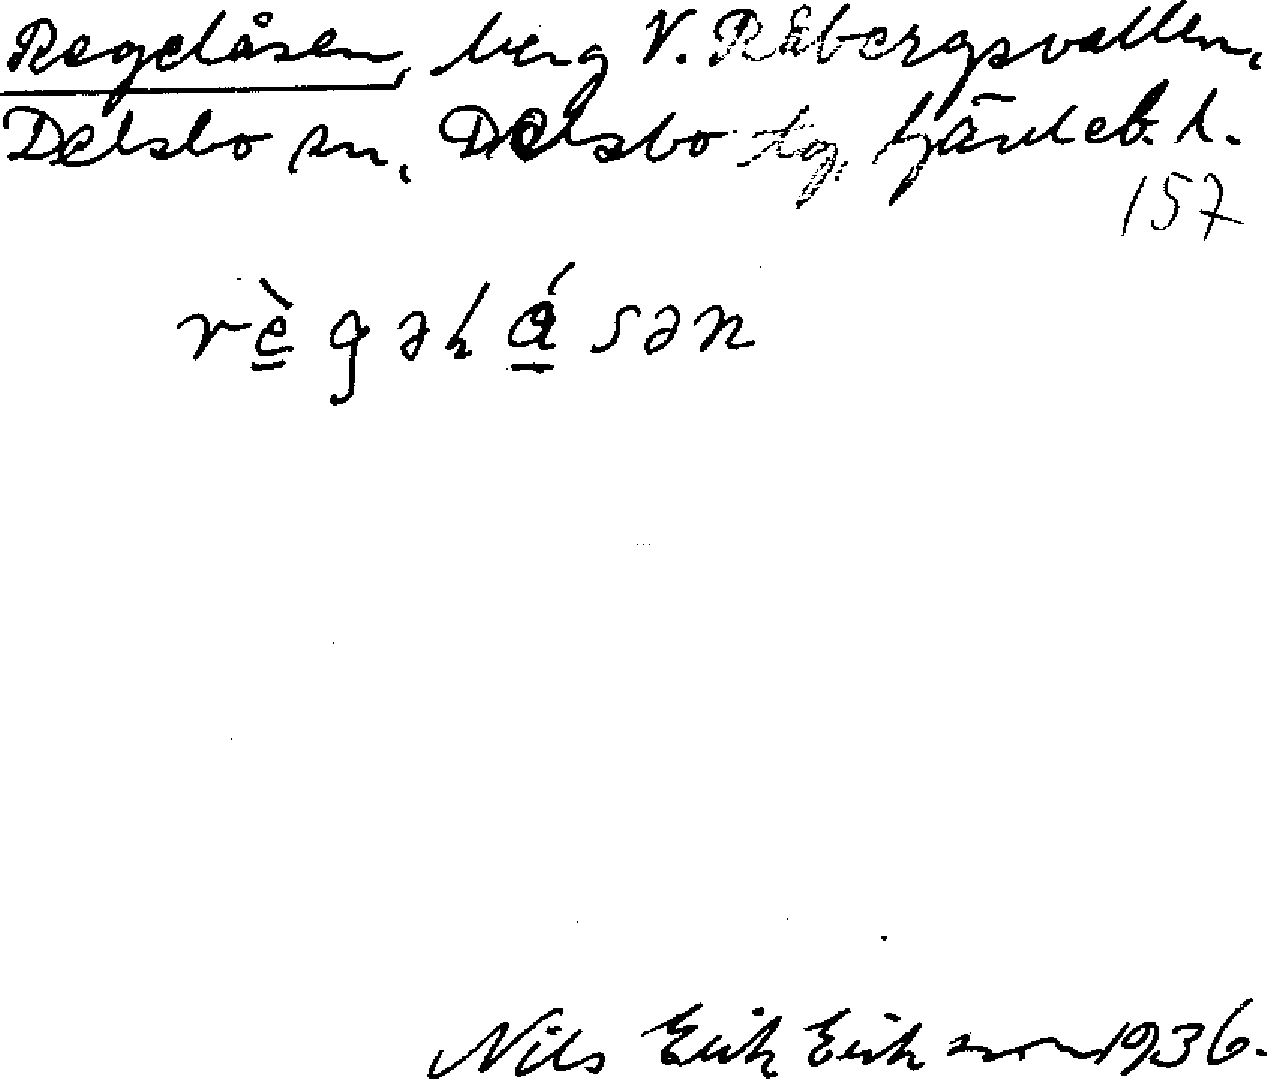 Regelåsen, berg V. Råbergsvallen,
Delsbo sn, Delsbo tg, Gävleb. l.
157
rè̱gəlá̱sən
Nils Erik Eriksson 1936.